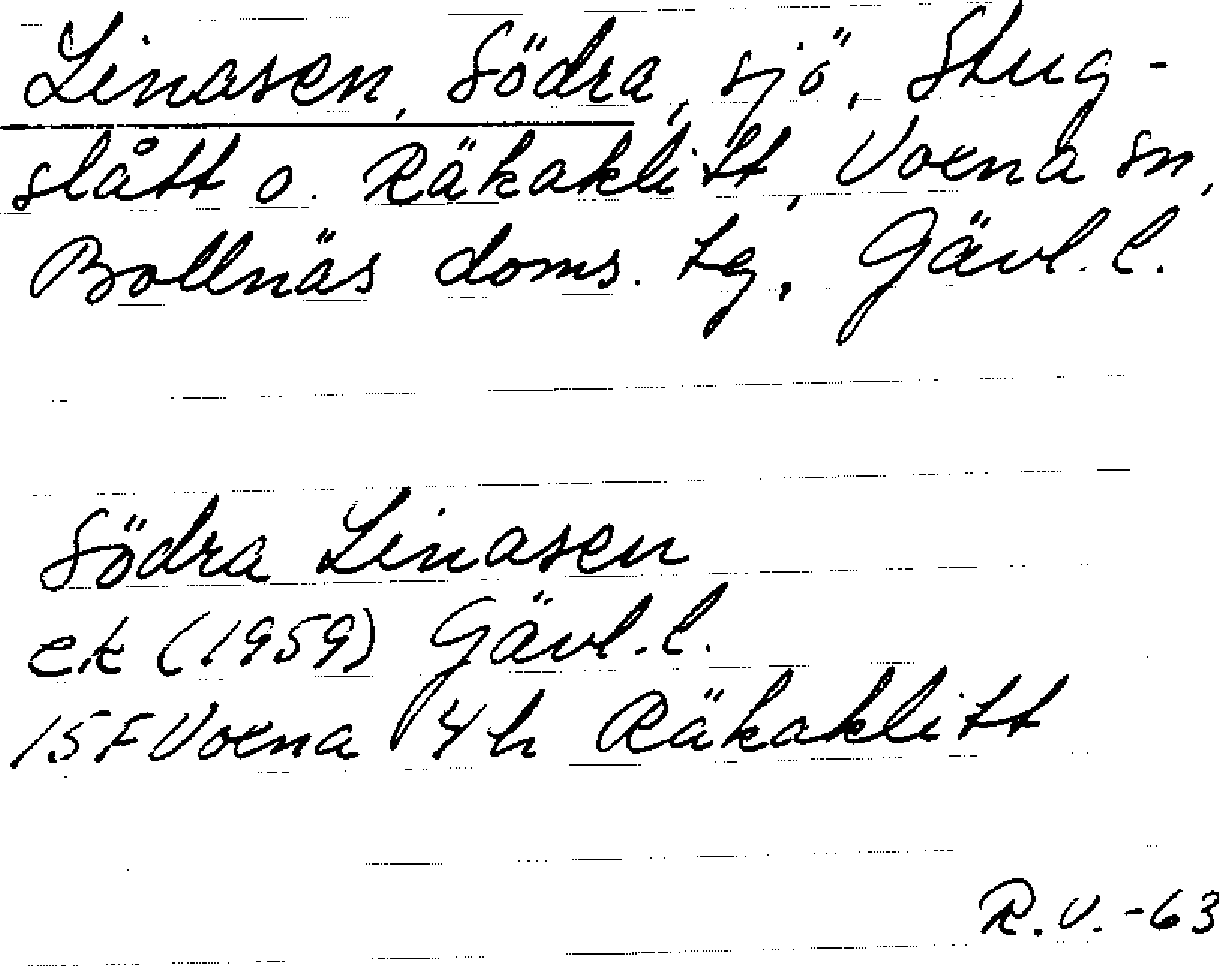 Linasen, Södra, sjö, Skug-
slått o. Räkaklitt, Voxna sn,
Bollnäs doms. tg, Gävl. l.
Södra Linasen
ek (1959) Gävl. l.
15F Voxna 4h Räkaklitt
R.V. -63